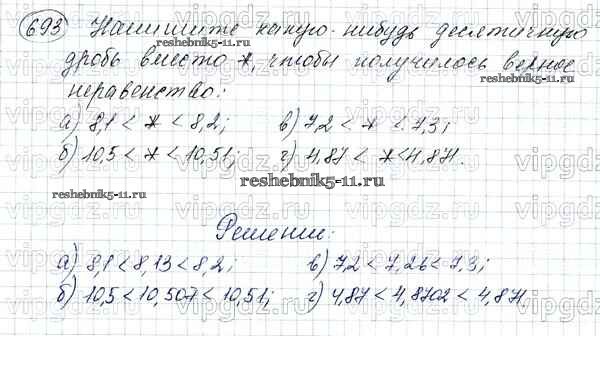 693 Напишите какую-нибудь десятичную
дробь вместо *, чтобы получилось верное
неравенство:
а) 8,1 < * < 8,2; в) 7,2 < * < 7,3;
б) 10,5 < * < 10,51; г) 4,87 < * < 4,871.
Решение:
а) 8,1 < 8,13 < 8,2; в) 7,2 < 7,26 < 7,3;
б) 10,5 < 10,507 < 10,51; г) 4,87 < 4,8702 < 4,871.
reshebnik5-11.ru
reshebnik5-11.ru
reshebnik5-11.ru
reshebnik5-11.ru
reshebnik5-11.ru
vipgdz.ru